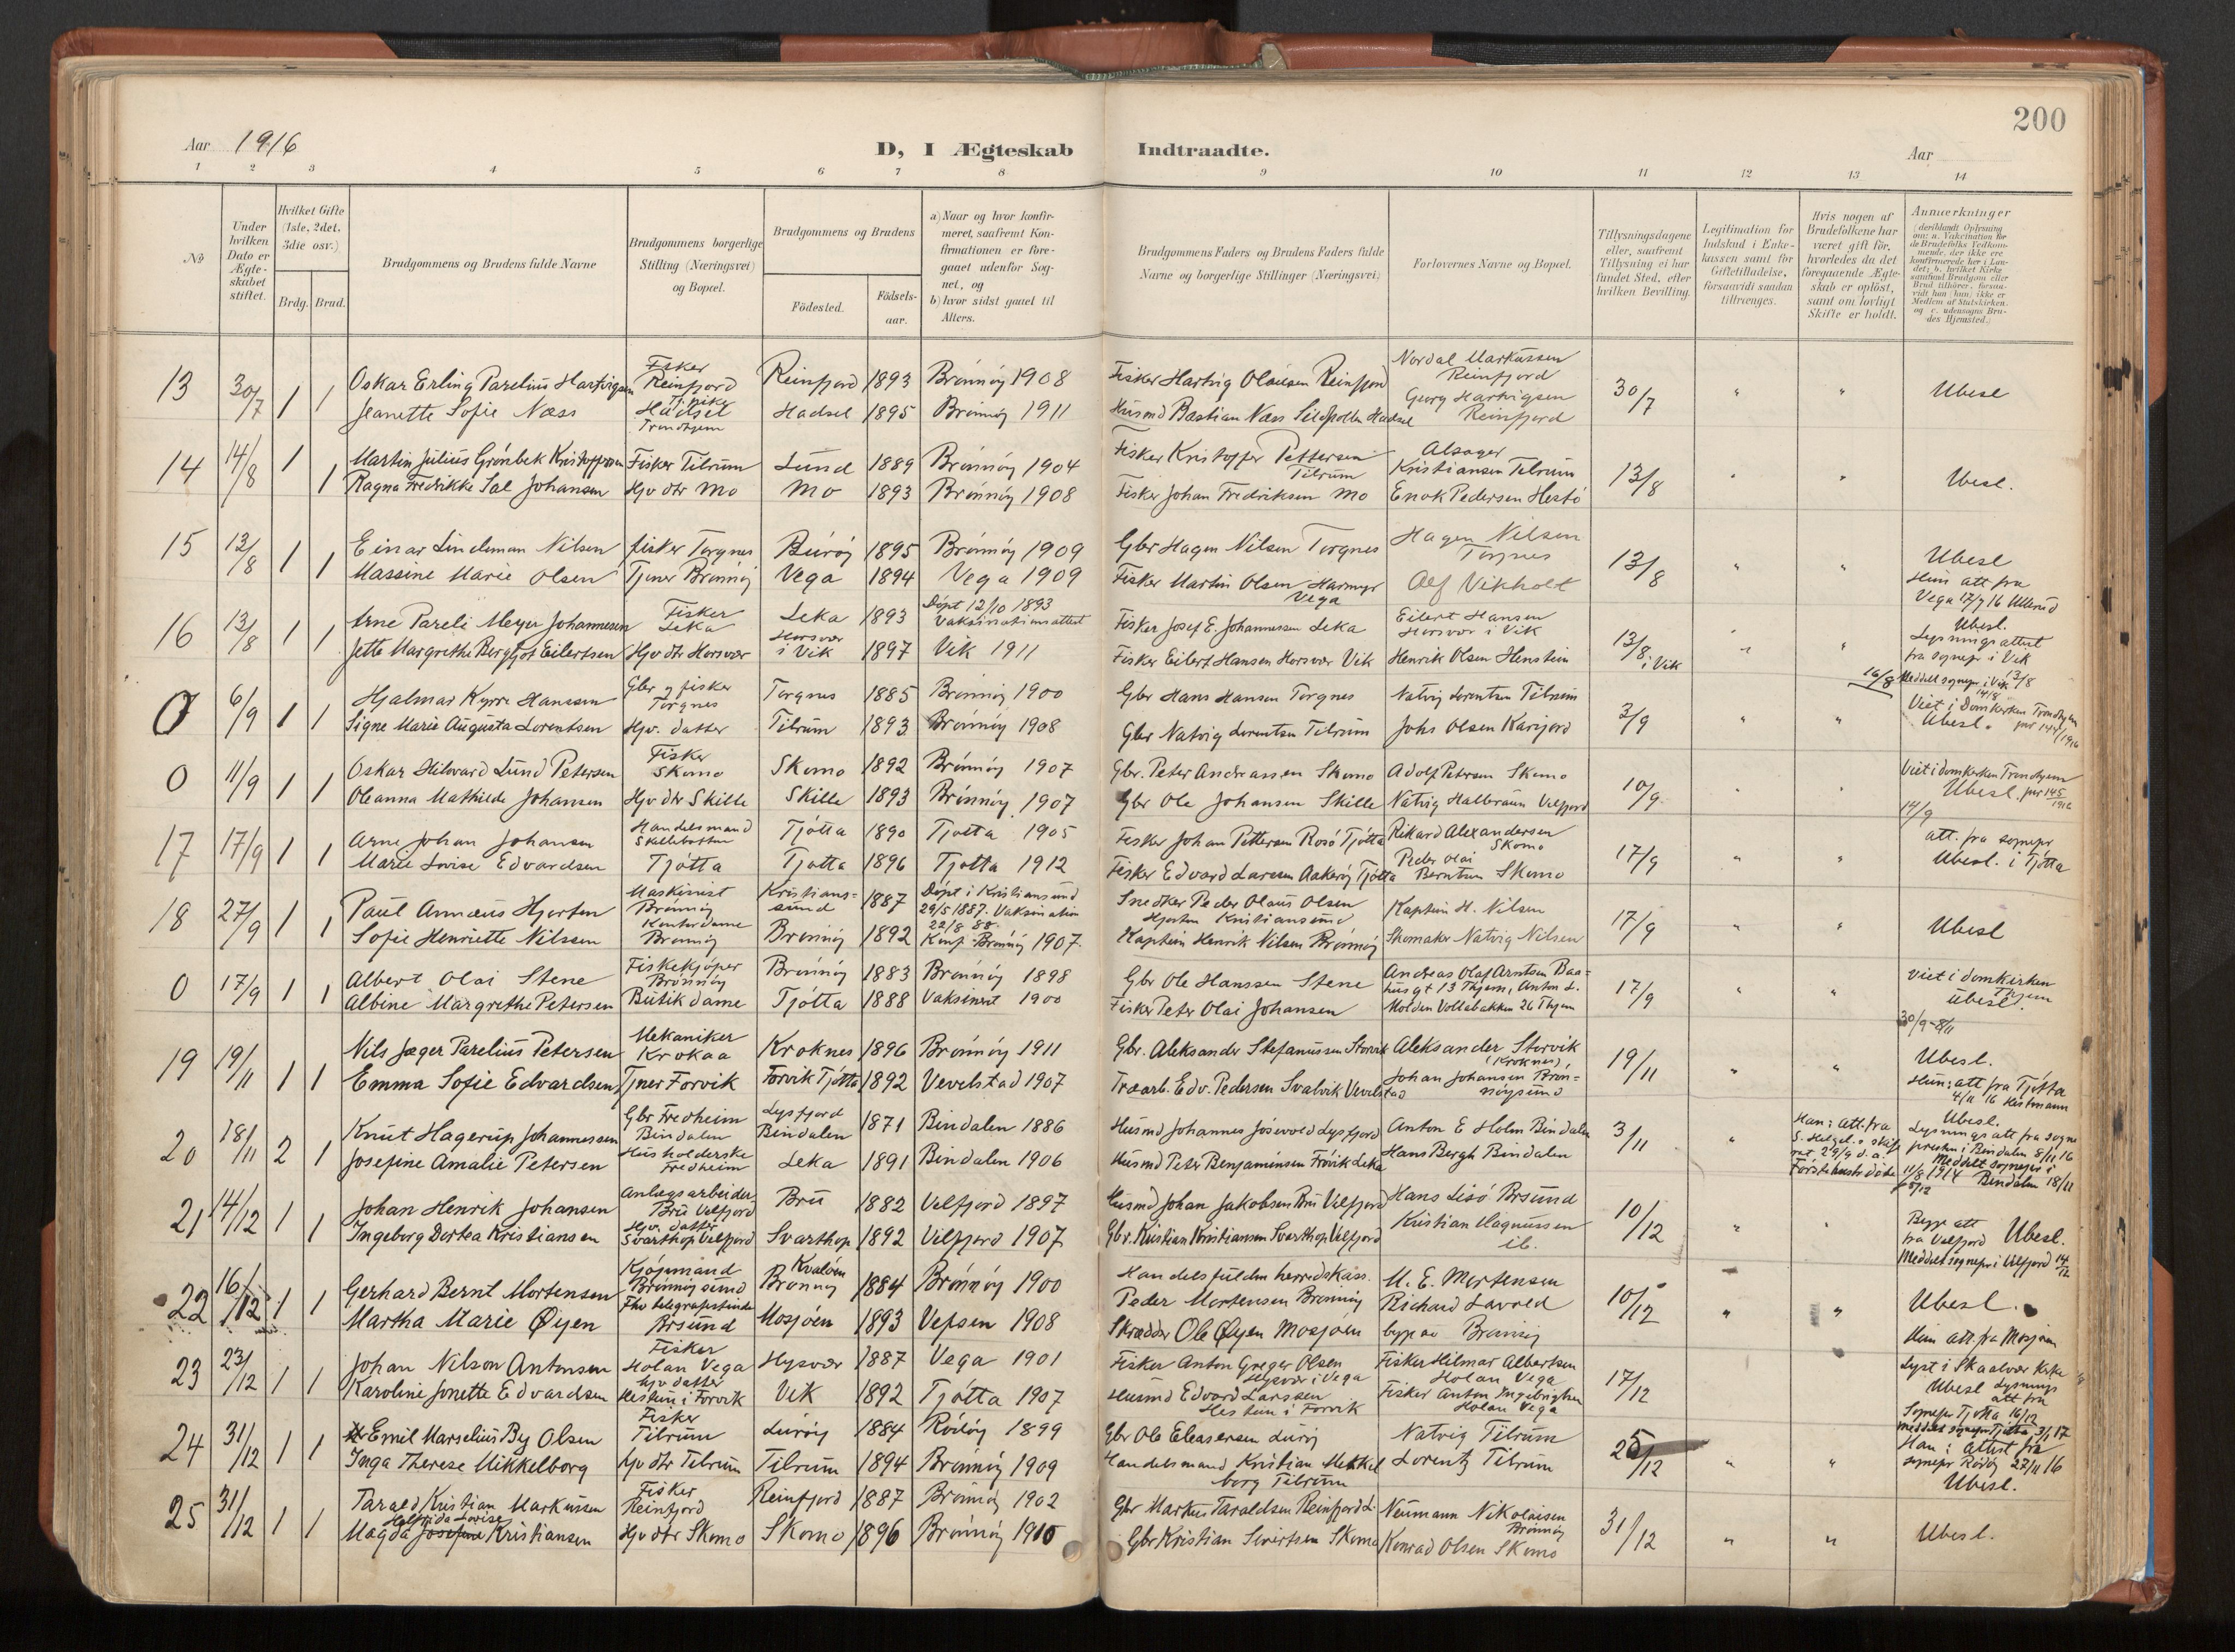 200
Aar 1916
D, I Ægteskab Indtraadte.
Aar
1 2 3 4 5 6 7 8 9 10 11 12 13 14
No
Under hvilken Dato er Ægteskabet stiftet.
Hvilket Gifte (1ste, 2det, 3die osv.)
Brdg. Brud.
Brudgommens og Brudens fulde Navne
Brudgommens borgerlige Stilling (Næringsvei) og Bopæl.
Brudgommens og Brudens
Födested.
Födselsaar.
a) Naar og hvor konfirmeret, saafremt Konfirmationen er foregaaet udenfor Sognet, og
b) hvor sidst gaaet til Alters.
Brudgommens Faders og Brudens Faders fulde Navne og borgerlige Stillinger (Næringsvei)
Forlovernes Navne og Bopæl.
Tillysningsdagene eller, saafremt Tillysning ei har fundet Sted, efter hvilken Bevilling.
Legitimation for Indskud i Enkekassen samt for Giftetilladelse, forsaavidt saadan tiltrænges.
Hvis nogen af Brudefolkene har været gift för, hvorledes da det foregaaende Ægteskab er oplöst, samt om lovligt Skifte er holdt.
Anmærkninger
13 30/7 1 1 Oskar Erling Parelius Hartvigsen Fisker Reinfjord Reinfjord 1893 Brønnøy 1908 Fisker Hartvig Olausen Reinfjord Nordal Markussen Reinfjord 30/7 " " Ubesl
Jeanette Sofie Næss Tj. pike Hadsel Trondhjem Hadsel 1895 Brønnøy 1911 Husmd Bastian Næss Hadsel Georg Hartvigsen Reinfjord
14 14/8 1 1 Martin Julius Grønbek Kristoffersen Fisker Tilrum Lund 1889 Brønnøy 1904 Fisker Kristoffer Pettersen Tilrum Kristiansen Tilrum 13/8 " " Ubesl.
Ragna Fredrikke Sal Johansen Hjv dtr Mo Mo 1893 Brønnøy 1908 Fisker Johan Fredriksen Mo Enok Pedersen Hestø
15 13/8 1 1 Einar Lindeman Nilsen fisker Torgnes Burøy 1895 Brønnøy 1909 Gbr Hagen Nilsen Torgnes Hagen Nilsen Torgnes 13/8 " " Ubesl
Massine Marie Olsen Tjener Brønnøy Vega 1894 Vega 1909 Fisker Martin Olsen Vega Alf Vikholt Hun att fra Vega 17/7 16
16 13/8 1 1 Arne Pareli Meyer Johannesen Fisker Leka Leka 1893 Døpt 12/10 1893 Vaksinationsattest Fisker Josef E. Johannessen Leka Eilert Hansen Horsvær i Vik 13/8 i Vik " " Ubesl. Lysningsattest fra sognepr i Vik
Jette Margrethe Bergljot Eilertsen Hjv dtr Horsvær Horsvær i Vik 1897 Vik 1911 Fisker Eilert Hansen Horsvær Vik Henrik Olsen Henstein
0 6/9 1 1 Hjalmar Kyrre Hanssen Gbr og fisker Torgnes Torgnes 1885 Brønnøy 1900 Gbr Hans Hansen Torgnes Natvig Lorentsen Tilrum 3/9 " " Viet i Domkirken Trondhjem
Signe Marie Augusta Lorentsen Hjv. datter Tilrum 1893 Brønnøy 1908 Gbr Natvig Lorentsen Tilrum Johs Olsen Karijord Ubesl.
0 11/9 1 1 Oskar Hilmard Lund Petersen Fisker Skomo Skomo 1892 Brønnøy 1907 Gbr. Peter Andreassen Skomo Adolf Petersen Skomo 10/9 " " Viet i domkirken Trondhjem
Oleanna Mathilde Johansen Hjv dtr Skille Skille 1893 Brønnøy 1907 Gbr Ole Johansen Skille Natvig Halbraun Velfjord Ubesl.
17 17/9 1 1 Arne Johan Johansen Handelsmand Skillebotten Tjøtta 1890 Tjøtta 1905 Fisker Johan Pettersen Rosø Tjøtta Rikard Alexandersen Skomo 17/9 " " att. fra sognepr i Tjøtta
Marie Lovise Edvardsen Tjøtta Tjøtta 1896 Tjøtta 1912 Fisker Edvard Larssen Aakerøy Tjøtta Peder Olai Berntsen Skomo Ubesl.
18 27/9 1 1 Paul Annæus Hjorten Maskinist Brønnøy Kristianssund 1887 Døpt i Kristiansund 29/5 1887. Vaksination 22/8 88. Snedker Peder Olaus Olsen Hjorten Kristiansund Kaptein H. Nilsen 17/9 " " Ubesl
Sofie Henriette Nilssen Kontordame Brønnøy Brønnøy 1892 Konf. Brønnøy 1907. Kaptein Henrik Nilsen Brønnøy Skomaker Natvig Nilsen
0 17/9 1 1 Albert Olai Stene Fiskekjøper Brønnøy Brønnøy 1883 Brønnøy 1898 Gbr Ole Hanssen Stene Andreas Olaf Arntsen Baahusgt 13 Thjem, Anton L. 17/9 " " Viet i domkirken Thjem
Albine Margrethe Petersen Butikdame Tjøtta 1888 Vaksinert 1900 Fisker Peter Olai Johansen Molden Vollabakken 26 Thjem Ubesl.
30/9-8/11
19 19/11 1 1 Nils Jæger Parelius Petersen Mekaniker Krokaa Kroknes 1896 Brønnøy 1911 Gbr. Aleksander Stefanussen Storvik Aleksander Storvik (Kroknes) 19/11 " " Ubesl.
Emma Sofie Edvardsen Tjner Forvik Forvik Tjøtta 1892 Vevelstad 1907 Træarb. Edv. Pedersen Svalvik Vevelstad Johan Johansen Brønnøysund Hun: att fra Tjøtta 4/11 16
20 18/11 2 1 Knut Hagerup Johannessen Gbr Fredheim Bindalen Lysfjord Bindalen 1871 Bindalen 1886 Husmd Johannes Lysfjord Anton E Holm Bindalen 3/11 " Han: att. fra S. Helgel.s skifteret 29/9 d.a. Ubesl. Lysningsatt fra sognepresten i Bindalen 8/11 16
Josefine Amalie Petersen Husholderske Fredheim Leka 1891 Bindalen 1906 Husmd Peter Benjaminsen Frøvik Leka Hans Bergh Bindalen Første hustr døde 11/8 1914 Meddelt sognepr i Bindalen 18/11
21 14/12 1 1 Johan Henrik Johansen Anlægsarbeider Bru Velfjord Bru 1882 Velfjord 1897 Husmd Johan Jakobsen Bru Velfjord Hans Lisø Brsund 10/12 " " Begge att fra Velfjord Ubesl.
Ingeborg Dortea Kristiansen Hjv. datter Svarthop Velfjord Svarthop 1892 Velfjord 1907 Gbr. Kristian Kristiansen Svarthop Velfjord Kristian Magnussen ib. Meddelt sognepr i Velfjord 14/12
22 16/12 1 1 Gerhard Bernt Mortensen Kjøpmand Brønnøysund Kvaløen Brønnøy 1884 Brønnøy 1900 Handelsfuldm herredskass. Peder Mortensen Brønnøy M. E. Mortensen 10/12 " " Ubesl.
Martha Marie Øyen Fhv telegrafistinde Brsund Mosjøen 1893 Vefsen 1908 Skrædder Ole Øyen Mosjøen Richard Lavold Brønnøy Hun att. fra Mosjøen
23 23/12 1 1 Johan Nilson Antonsen Fisker Holan Vega Hysvær 1887 Vega 1901 Fisker Anton Greger Olsen Hysvær i Vega Fisker Hilmar Albertsen Holan Vega 17/12 Lyst i Skaalvær Kirke
Karoline Jonette Edvardsen hjv datter Hestun i Forvik Vik 1892 Tjøtta 1907 Husmd Edvard Larssen Hestun i Forvik Fisker Anton Ingebrigtsen Holan Vega Ubesl Lysningsatt fra Sognepr Tjøtta 16/12
24 31/12 1 1 Emil Marselius By Olsen Fisker Tilrum Lurøy 1884 Rödöy 1899 Gbr Ole Eleasersen Lurøy Natvig Tilrum 25/12 " " Han: attest fra sognepr Rödöy 27/11 16
Inga Therese Mikkelborg hjv dtr Tilrum Tilrum 1894 Brønnøy 1909 Handelsmand Kristian Mikkelborg Tilrum Lorentz Tilrum Ubesl.
25 31/12 1 1 Tarald Kristian Markussen Fisker Reinfjord Reinfjord 1887 Brønnøy 1902 Gbr Markus Taraldsen Reinfjord Neumann Nikolaisen Brønnøy 31/12 " " Ubesl.
Magda Josefine Kristiansen Hjv dtr Skomo Skomo 1896 Brønnøy 1910 Gbr Kristian Sivertsen Skomo Konrad Olsen Skomo